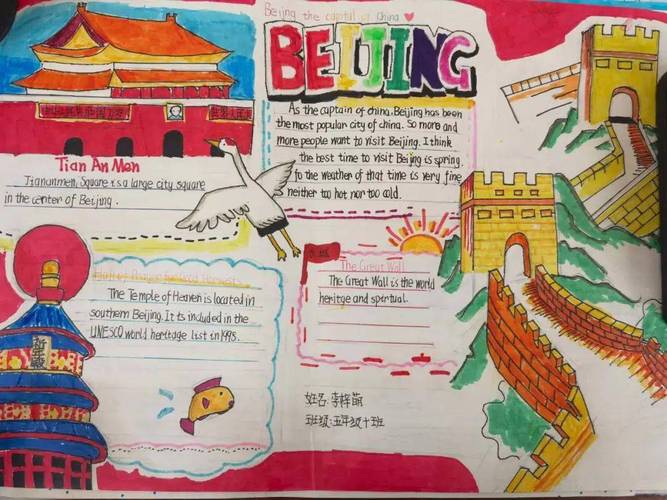 Beijing the capital of China
BEIJING
As the captain of china. Beijing has been
the most popular city of china. So more and
more people want to visit Beijing. I think
the best time to visit Beijng is spring
fo the weather of that time is very fine
neither too hot nor too cold.
Tian An Men
Tiananmen. Square is a large city square
in the center of Beijing.
The Temple of Heaven is located in
southern Beijing. It is included in the
UNESCO world heritage list in 1998.
祈年殿
The Great Wall
The Great Wall is the world
heritge and spirtual.
姓名:李梓萌
班级:五年级十班